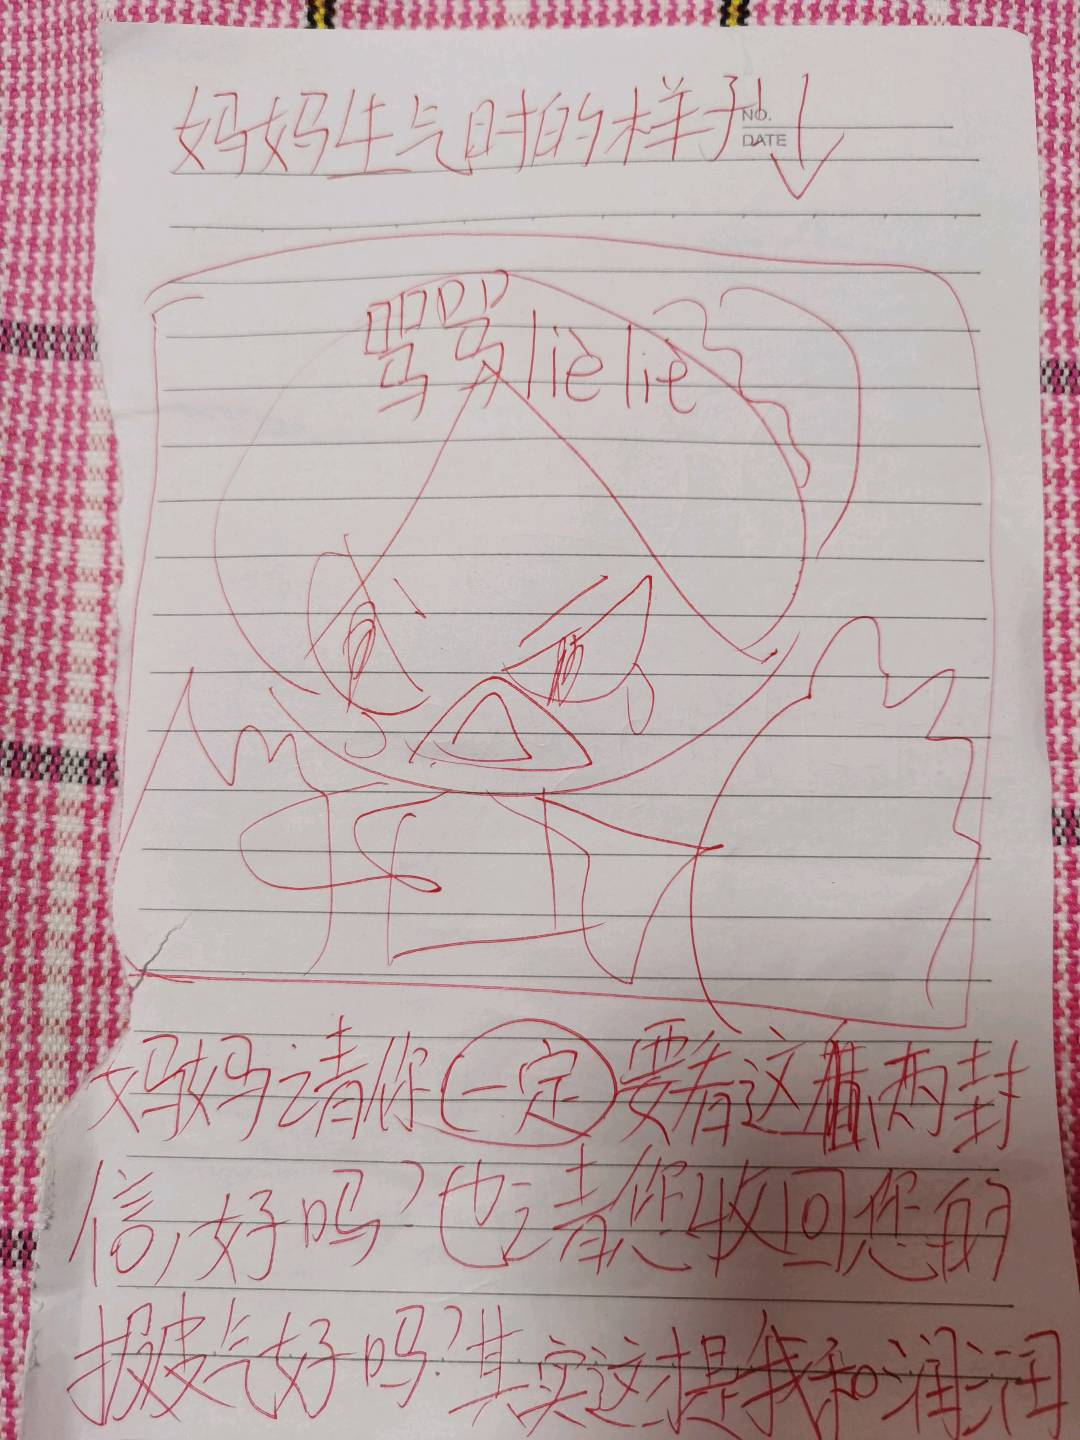 妈妈生气时的样子↓
NO.
DATE
骂骂lièliè
妈妈请你一定要看这两封
信,好吗?也请您收回您的
皮气好吗?其实这才是我和润润